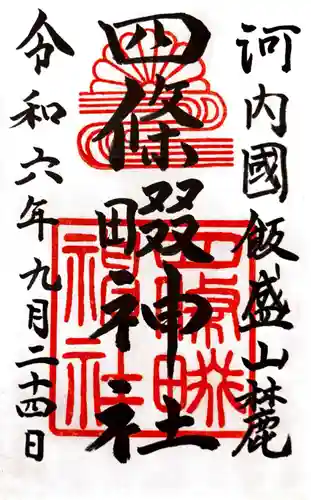 河内國飯盛山麓
四條畷神社
令和六年九月二十四日
四條畷神社